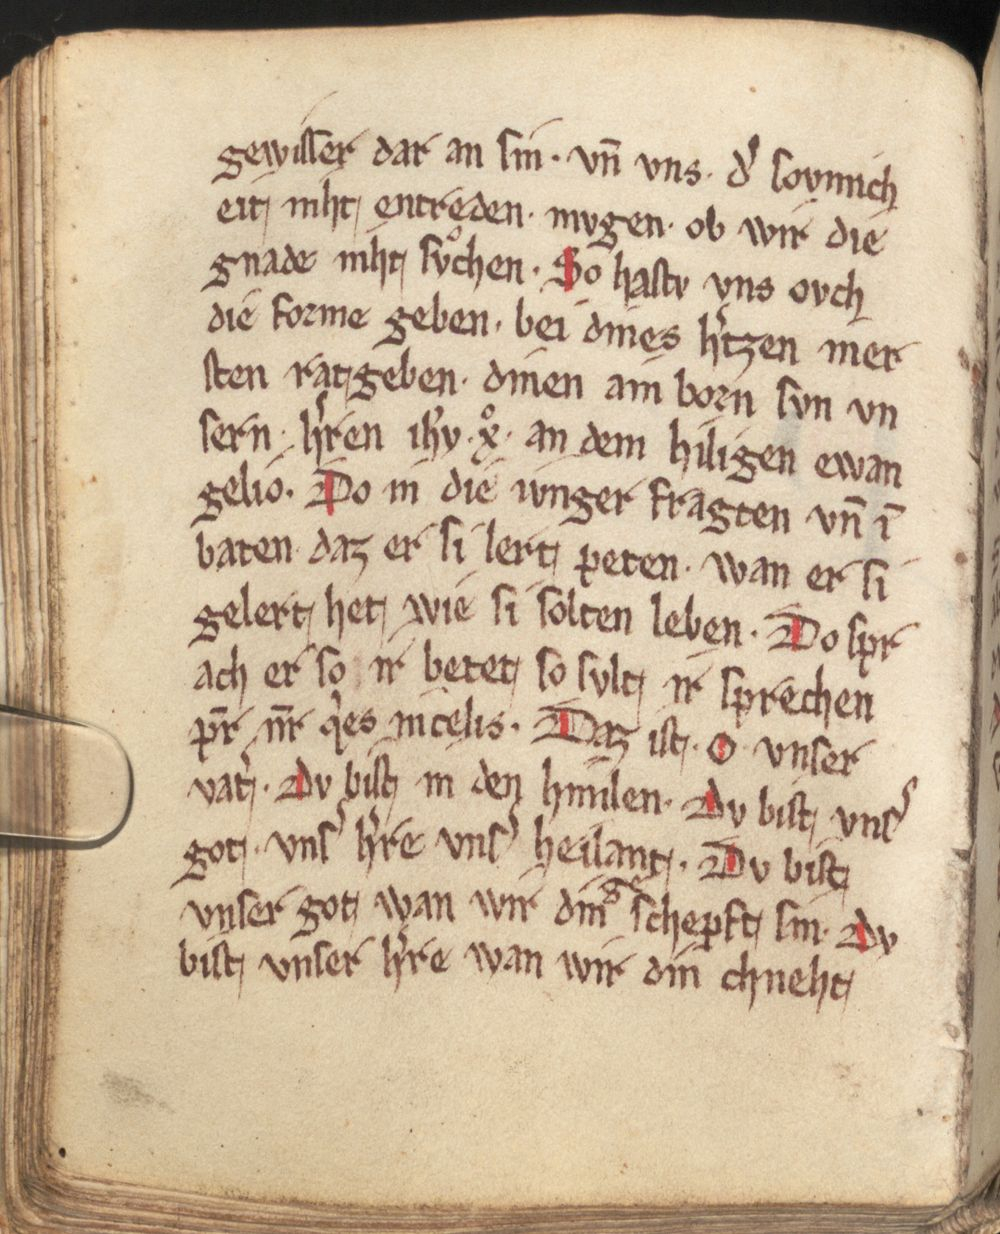 gewisser dar an sin · vn̄ vns · d͛ sovmich
eit niht entreden · mvgen · ob wir die
gnade niht svͦchen · So hastv vns ovch
die forme geben · bei dines h͛tzen mer
sten ratgeben · dinen ain born svn vn
sern · h͛ren ih̄v · xͦ · an dem hiligen ewan
gelio · Do in die ivnger fragten vn̄ ī
baten daz er si lert peten · wan er si
gelert het wie si solten leben · Do spr
ach er so ir betet so svlt ir sprechen
pr̄ nr̄ q̇es in celis · Daz ist · O vnser
vat͛ · Dv bist in den himilen · Dv bist vns͛
got · vns͛ h͛re vns͛ heilant · Dv bist
vnser got wan wir dinͣ schepft sin · Dv
bist vnser h͛re wan wir din chneht